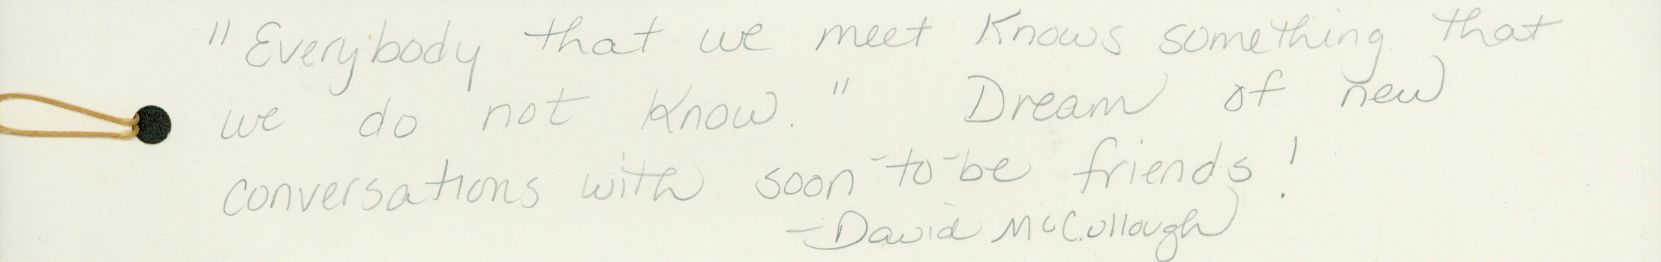 "Everybody that we meet Knows something that
we do not Know." Dream of new
conversations with soon-to-be friends!
-David McCullough